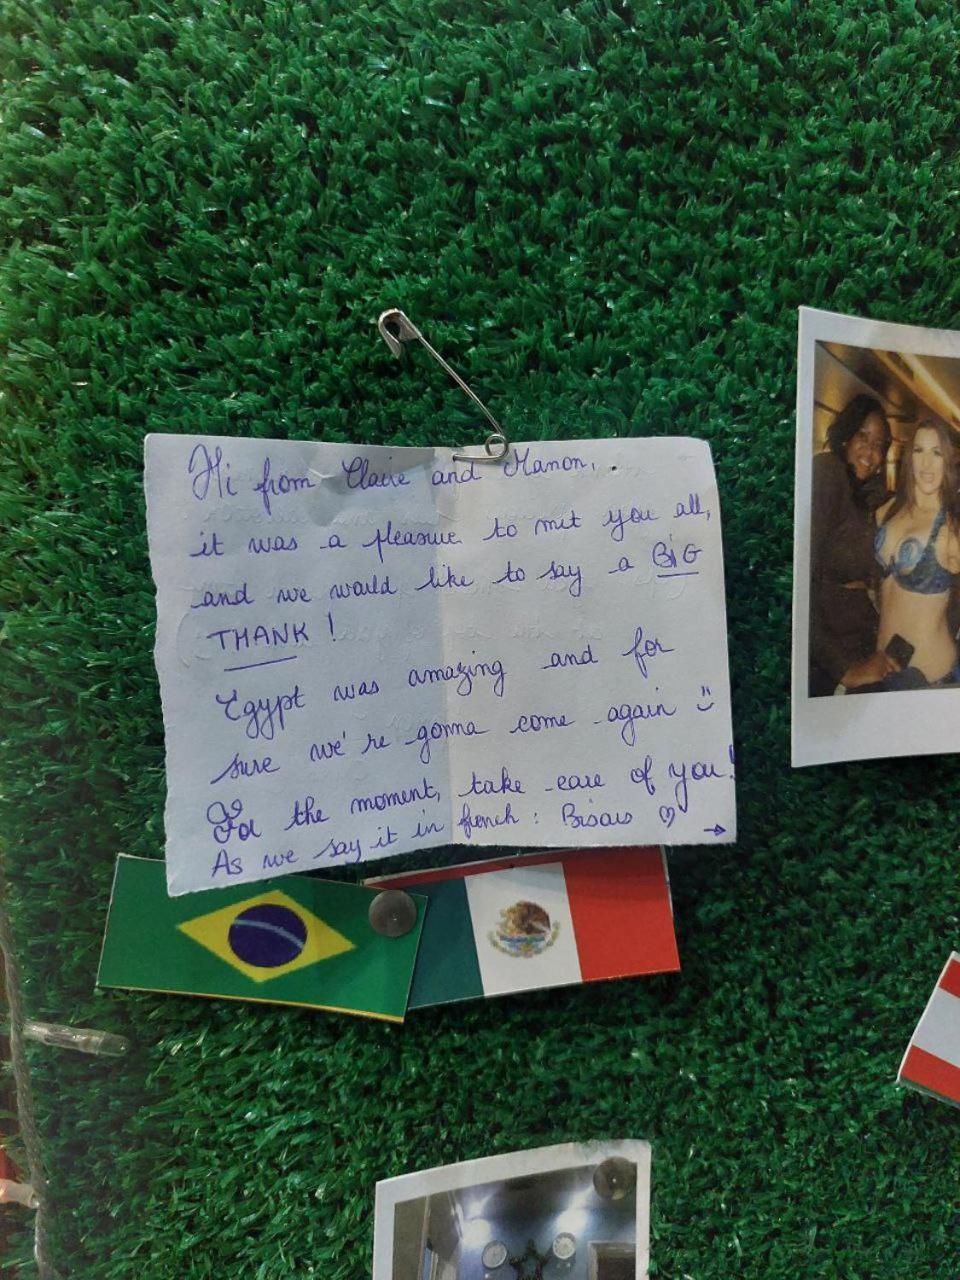 Hi from Claire and Manon,
it was a pleasure to met you all,
and we would like to say a BIG
THANK !
Egypt was amazing and for
sure we're gonna come again :)
For the moment, take care of you!
As we say it in french : Bisous ♡ →